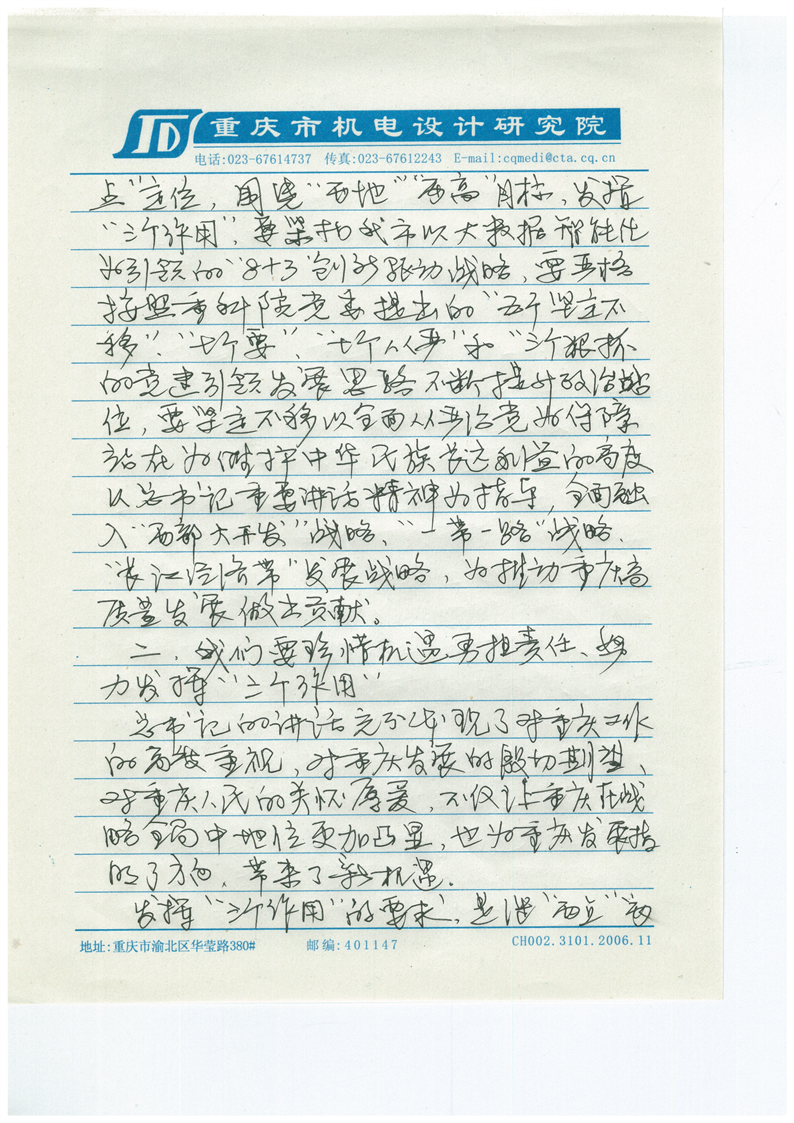 JD 重庆市机电设计研究院
电话:023-67614737 传真:023-67612243 E-mail:cqmedi@cta.cq.cn
点”定位, 围绕“两地”“两高”目标, 发挥
“三个作用”, 要紧扣我市以大数据智能化
为引领的“8+3”创新驱动战略, 要严格
按照重科院党委提出的“五个坚定不
移”、“七个要”、“七个从严”和“三个狠抓
的党建引领发展思路不断提升政治站
位, 要坚定不移以全面从严治党为保障
站在为维护中华民族长远利益的高度
以总书记重要讲话精神为指导, 全面融
入“西部大开发”战略、“一带一路”战略、
“长江经济带”发展战略, 为推动重庆高
质量发展做出贡献。
二、我们要珍惜机遇勇担责任、努
力发挥“三个作用”
总书记的讲话充分体现了对重庆工作
的高度重视, 对重庆发展的殷切期望、
对重庆人民的关怀厚爱, 不仅让重庆在战
略全局中地位更加凸显, 也为重庆发展指
明了方向, 带来了新机遇.
发挥“三个作用”的要求, 是继“两点”“两
地址:重庆市渝北区华莹路380# 邮编:401147 CH002.3101.2006.11